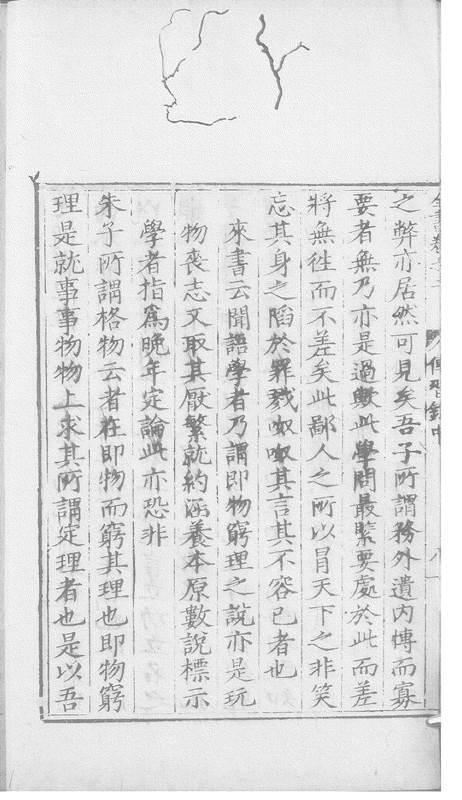 之弊亦居然可見矣吾子所謂務外遺内慱而寡
要者無乃亦是過歟此學問最緊要處於此而差
將無徃而不差矣此鄙人之所以冒天下之非笑
忘其身之陷於罪戮呶呶其言其不容已者也
來書云聞語學者乃謂即物窮理之說亦是玩
物喪志又取其厭繁就約涵養本原數說標示
學者指爲晚年定論此亦恐非
朱子所謂格物云者在即物而窮其理也即物窮
理是就事事物物上求其所謂定理者也是以吾